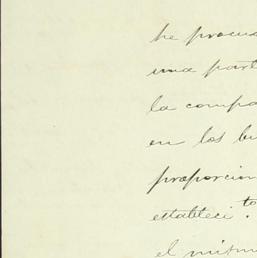 he procu
una part
la compa
en los bu
proporcion
establecí to.
el mism